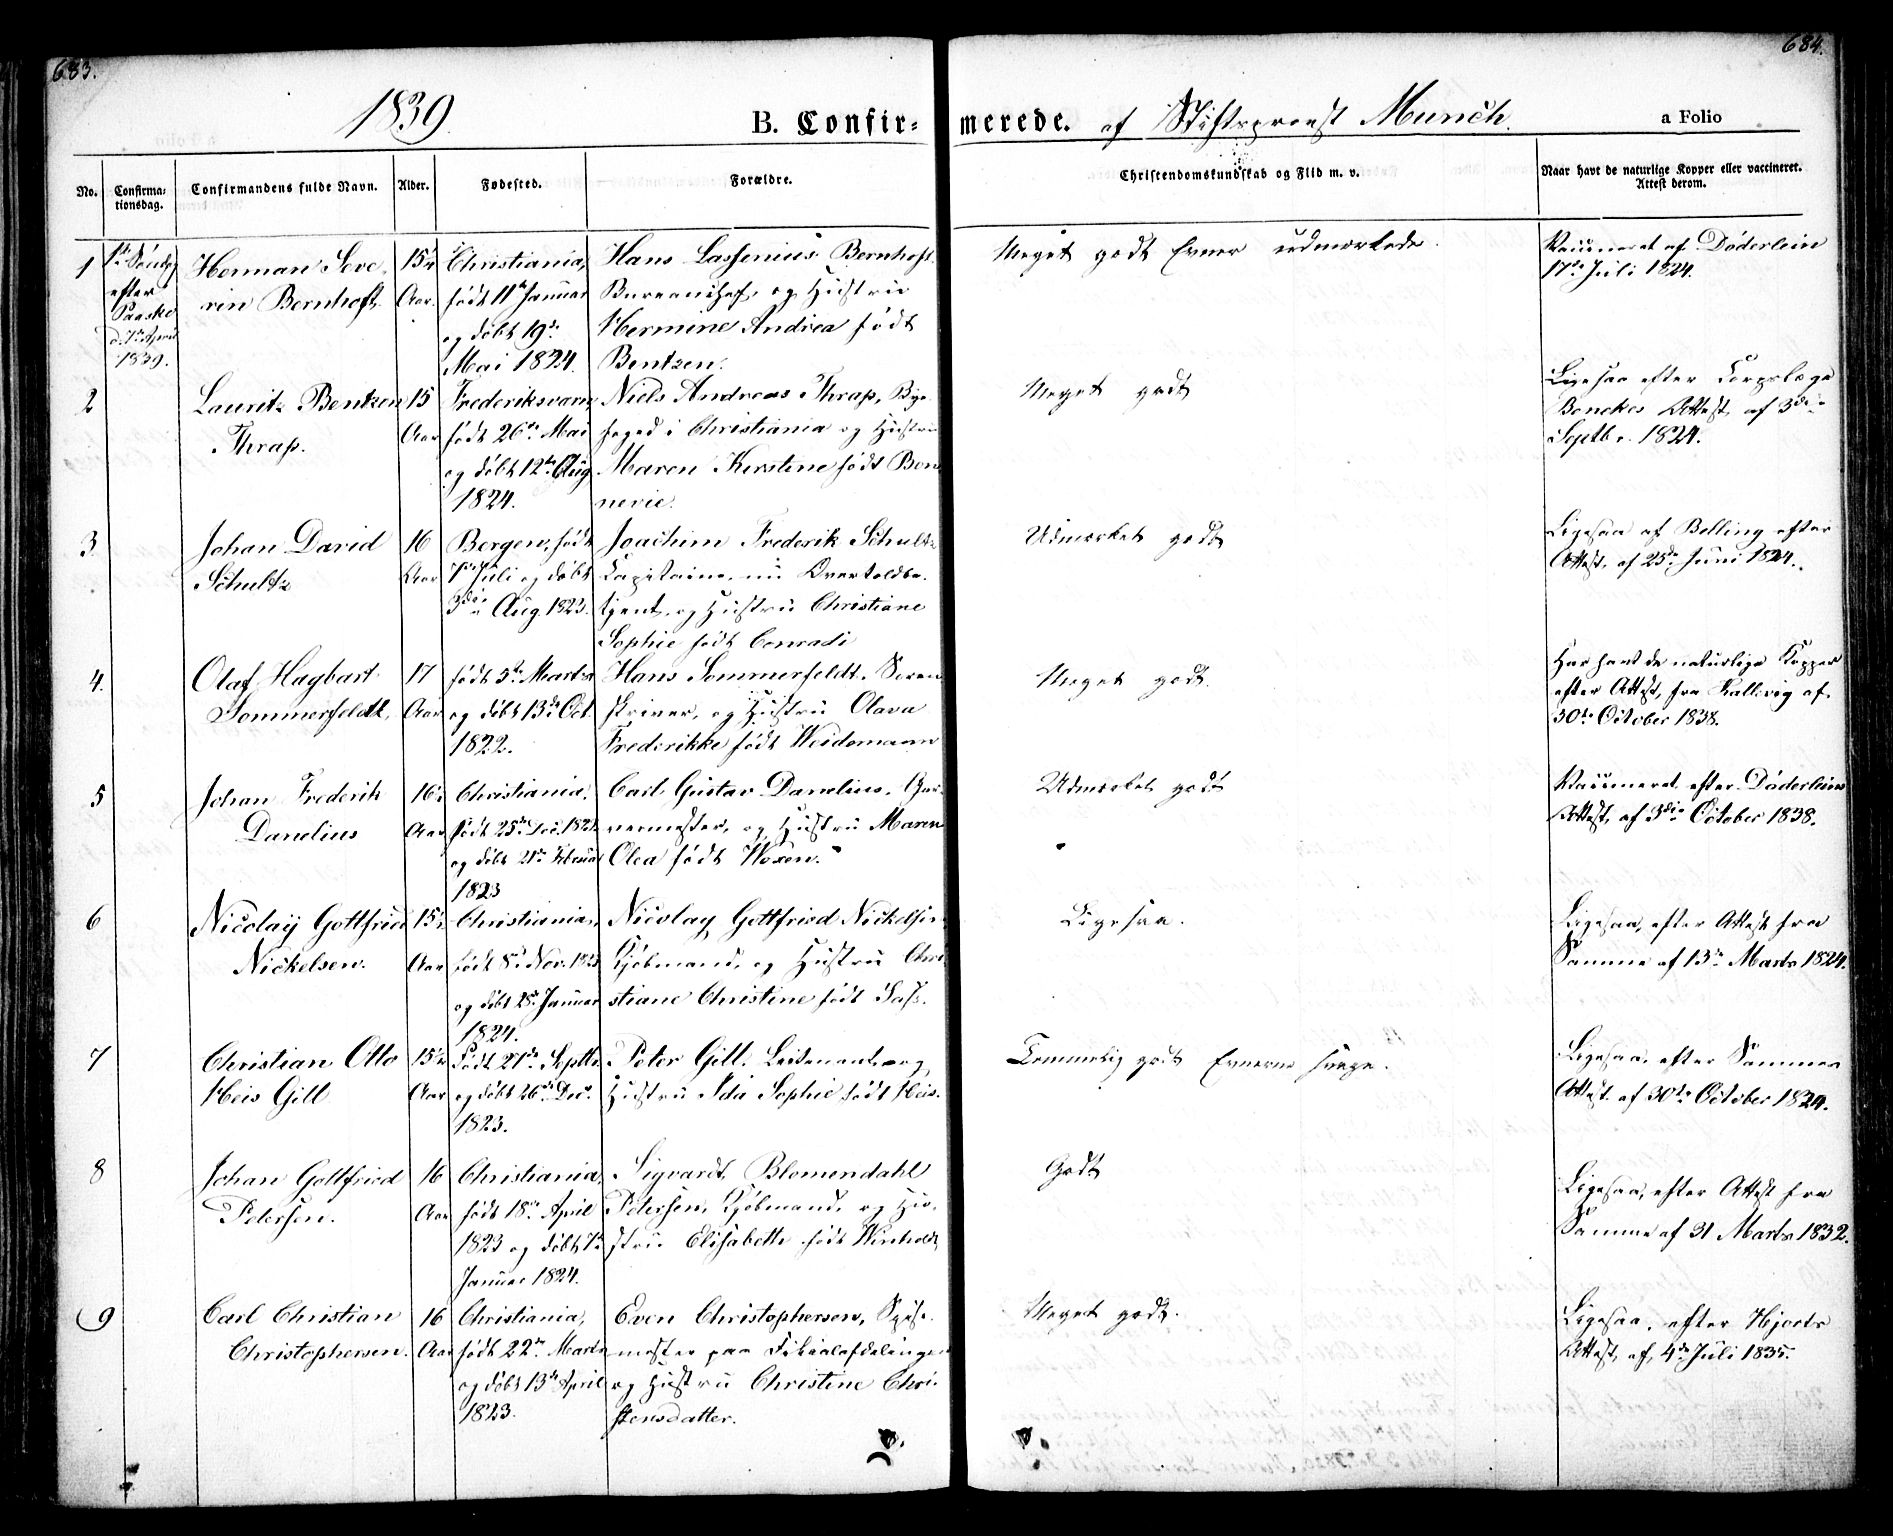 683.
684.
1839.
B. Confirmerede. af Stiftsprovst Munch.
a Folio
No.
Confirmationsdag.
Confirmandens fulde Navn.
Alder.
Fødested.
Forældre.
Christendomskundskab og Flid m. v.
Naar havt de naturlige Kopper eller vaccineret.
Attest derom.
1
1ste Søndag
efter
Paaske
d. 7de April
1839.
Herman Seve-
rin Bernhoft.
15¼
Aar.
Christiania,
født 11te Januar
og døbt 19de
Mai 1824.
Hans Lassenius Bernhoft
Bureauchef, og Hustrue
Hermine Andrea født
Bentzen.
Meget godt Evner udmærkede.
Vaccineret af Døderlein
17de Juli 1824.
2
Lauritz Bentzen
Thrap.
15
Aar
Frederiksværn,
født 26de Mai
og døbt 12te Aug
1824.
Niels Andreas Thrap, Bye-
foged i Christiania og Hustrue
Maren Kirstine født Bon-
nevie.
Meget godt
Ligesaa efter Corpslæge
Benekes Attest af 3die
Septbr. 1824.
3
Johan David
Schultz
16
Aar
Bergen, født
7de Juli og døbt
3die Aug 1823.
Joachim Frederik Schultz
Capitaine, nu Overtoldbe-
tjent, og Hustrue Christiane
Sophie født Conradi
Udmærket godt
Ligesaa af Bølling efter
Attest, af 25de Juni 1824.
4.
Olaf Hagbart
Sommerfeldt,
17
Aar
født 5te Marts
og døbt 13de Oct.
1822.
Hans Sommerfeldt, Soren-
skriver, og Hustrue Olava
Frederikke født Weidemann
Meget godt.
Har havt de naturlige Kopper
efter Attest, fra Kallevig af
30te October 1838.
5
Johan Frederik
Danelius
16¼
Aar
Christiania,
født 25de Dec. 1822
og døbt 21de Februar
1823
Carl Gustav Danelius, Gar-
vermester, og Hustrue Maren
Olea født Woxen.
Udmærket godt
Vaccineret efter Døderleins
Attest, af 3die October 1838.
6
Nicolay Gottfried
Nickelsen.
15½
Aar
Christiania,
født 8de Nov. 1823
og døbt 28de Januar
1824.
Nicolay Gottfried Nickelsen
Kjøbmand, og Hustrue Chri-
stiane Christine født Sass.
Ligesaa.
Ligesaa, efter Attest fra
Samme af 13de Marts 1824.
7
Christian Otto
Heis Gill
15½
Aar
født 27de Septbr.
og døbt 26de Dec.
1823.
Peter Gill, Leitenant og
Hustrue Ida Sophie født Heis.
Temmelig godt Evnerne svage.
Ligesaa, efter Sammes
Attest af 30te October 1824.
8
Johan Gottfried
Petersen.
16
Aar
Christiania,
født 18de April
1823 og døbt 1ste
Januar 1824.
Sigvardt Blomendahl
Petersen, Kjøbmand, og Hu-
strue Elisabeth født Winholdt
Godt
Ligesaa, efter Attest fra
Samme af 31 Marts 1832.
9
Carl Christian
Christophersen.
16
Aar
Christiania,
født 22de Marts
og døbt 13de April
1823.
Even Christophersen, Spise-
mester paa Filialafdelingen
og Hustrue Christine Chri-
stensdatter.
Meget godt.
Ligesaa, efter Hjorts
Attest, af 4de Juli 1835.